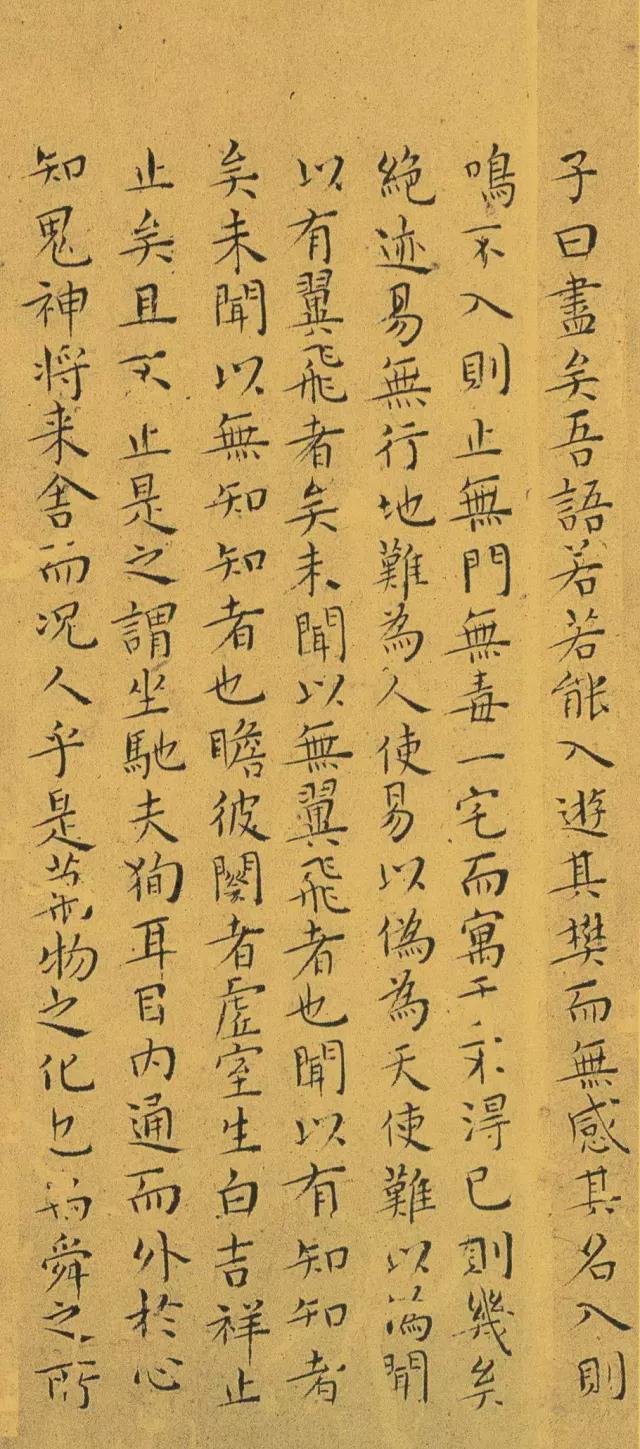 子曰盡矣吾語若若能入遊其樊而無感其名入則
鳴不入則止無門無毒一宅而寓于不得已則幾矣
絶迹易無行地難為人使易以偽為天使難以偽聞
以有翼飛者矣未聞以無翼飛者也聞以有知知者
矣未聞以無知知者也瞻彼闋者虛室生白吉祥止
止矣且不止是之謂坐馳夫狥耳目内通而外於心
知鬼神将来舍而况人乎是萬物之化也禹舜之所